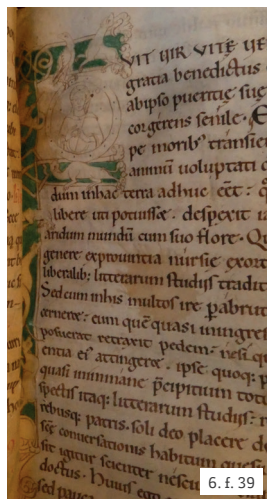 VIT VIR VITĘ VE
gratia benedictus
ab ipso pueritię suę
cor gerens senile. Ę
pe morib' transien
animũ voluptati
dum in hac terra adhuc eēt. q
libere uti potuisset. despexit ia
aridum mundũ cum suo flore. Qu
genere ex provintia nursię exort
liberalib; litterarum studiis tradit
Sed cum in his multos ire p abrupt
cerneret. eum quē quasi in ingres
posuerat retraxit pedem. ne si qu
entia ei' attingeret. ipse quoq; p
quasi in immane p̄cipitium toti
spectis itaq; litterarum studiis. r
rebusq; patris. soli deo placere d
sc̄ę conversationis habitum ques
sit igitur scienter nesci
doctus. Huius ego
sed pauca
6. f. 39